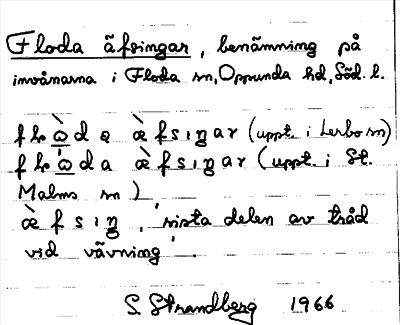 Floda äfsingar, benämning på
invånarna i Floda sn, Oppunda hd, Söd. l.
flὼdα æ̀fsiŋar (uppt. i Lerbo sn)
flὼdα æ̀fsiŋar (uppt. i St.
Malms sn)
æ̀fsiŋ, 'sista delen av tråd
vid vävning'.
S. Strandberg 1966